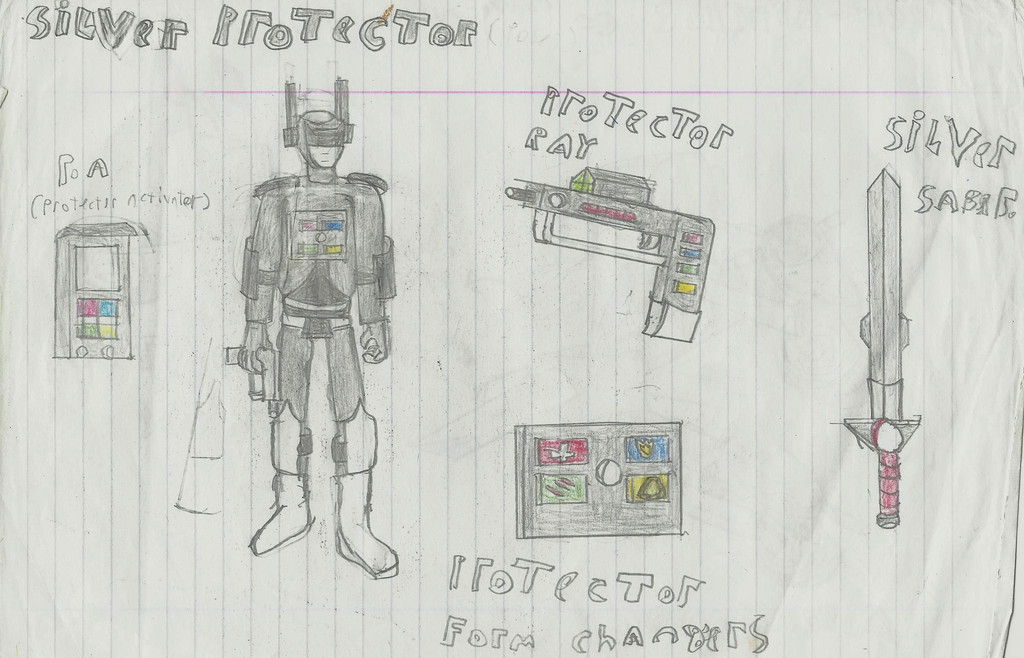 SiLVer ProTecTor
P.A
(Protector Activater)
ProTecTor
RAY
SiLVer
SABER.
ProTecTor
Form chANGERS